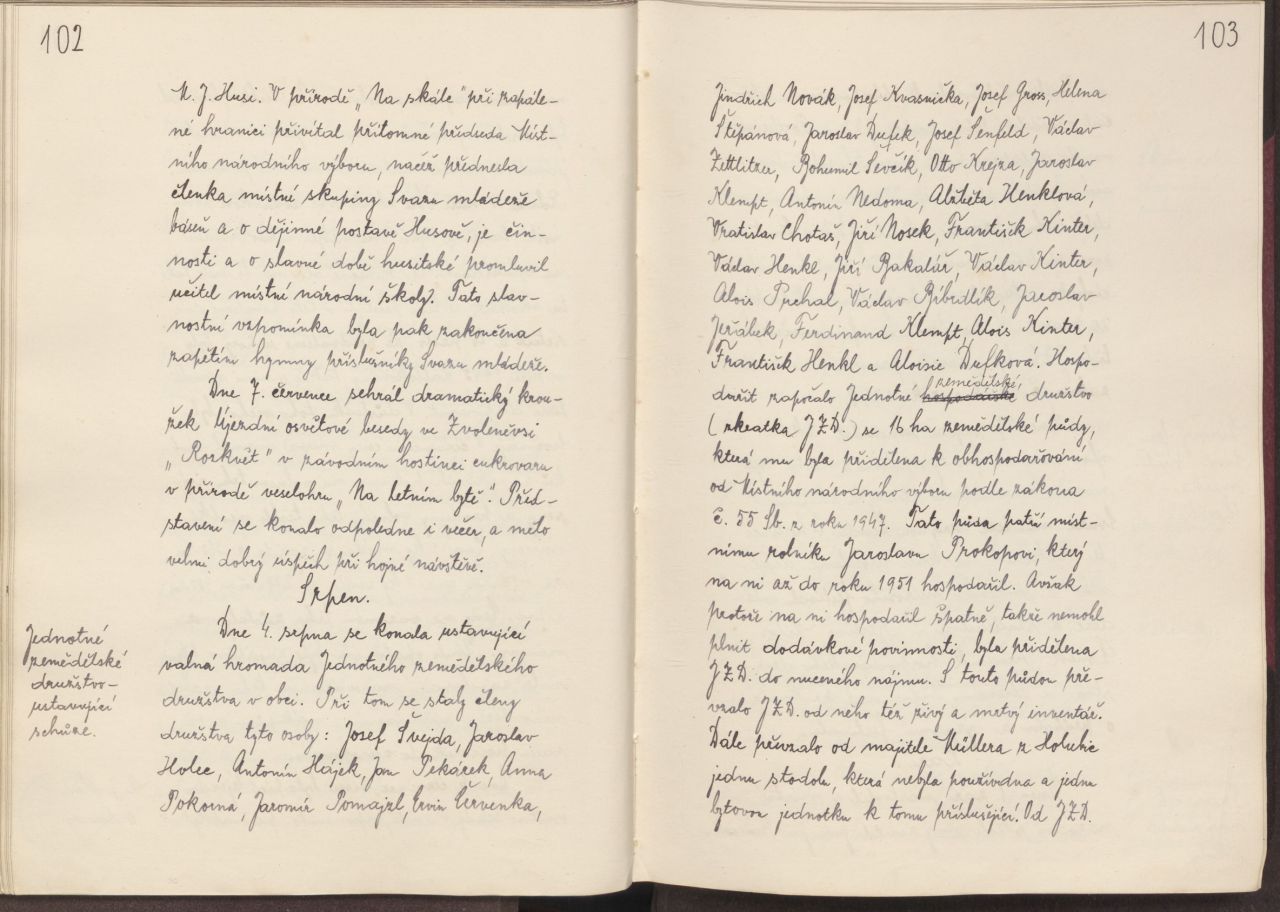 102
M. J. Husi. V přírodě „Na skále" při zapále-
né hranici přivítal přítomné předseda Míst-
ního národního výboru, načež přednesla
členka místní skupiny Svazu mládeže
báseň a o dějinné postavě Husově, je čin-
nosti a o slavné době husitské promluvil
učitel místní národní školy. Tato slav-
nostní vzpomínka byla pak zakončena
zapětím hymny příslušníky Svazu mládeže.
Dne 7. července sehrál dramatický krou-
žek Újezdní osvětové besedy ve Zvoleněvsi
„Rozkvět" v závodním hostinci cukrovaru
v přírodě veselohru „Na letním bytě". Před-
stavení se konalo odpoledne i večer, a mělo
velmi dobrý úspěch při hojné návštěvě.
Srpen.
Jednotné
zemědělské
družstvo-
ustavující
schůze.
Dne 4. srpna se konala ustavující
valná hromada Jednotného zemědělského
družstva v obci. Při tom se staly členy
družstva tyto osoby: Josef Švejda, Jaroslav
Holec, Antonín Hájek, Jan Pekárek, Anna
Pokorná, Jaromír Pomajzl, Ervín Červenka,
103
Jindřich Novák, Josef Kvasnička, Josef Gross, Helena
Štěpánová, Jaroslav Dufek, Josef Šenfeld, Václav
Zettlitzer, Bohumil Ševčík, Otto Krejza, Jaroslav
Klempt, Antonín Nedoma, Alžběta Henklová,
Vratislav Chotaš, Jiří Nosek, František Kinter,
Václav Henkl, Jiří Bakalář, Václav Kinter,
Alois Prchal, Václav Bíbrdlík, Jaroslav
Jeřábek, Ferdinand Klempt, Alois Kinter,
František Henkl a Aloisie Dufková. Hospo-
zemědělské
dařit započalo Jednotné hospodářské družstvo
(zkratka J.Z.D.) se 16 ha zemědělské půdy,
která mu byla přidělena k obhospodařování
od Místního národního výboru podle zákona
č. 55 Sb. z roku 1947. Tato půda patří míst-
nímu rolníku Jaroslavu Prokopovi, který
na ní až do roku 1951 hospodařil. Avšak
protože na ní hospodařil špatně, takže nemohl
plnit dodávkové povinnosti, byla přidělena
J.Z.D. do nuceného nájmu. S touto půdou pře-
vzalo J.Z.D. od něho též živý a mrtvý inventář.
Dále převzalo od majitele Müllera z Holubic
jednu stodolu, která nebyla používána a jednu
bytovou jednotku k tomu příslušející. Od J.Z.D.